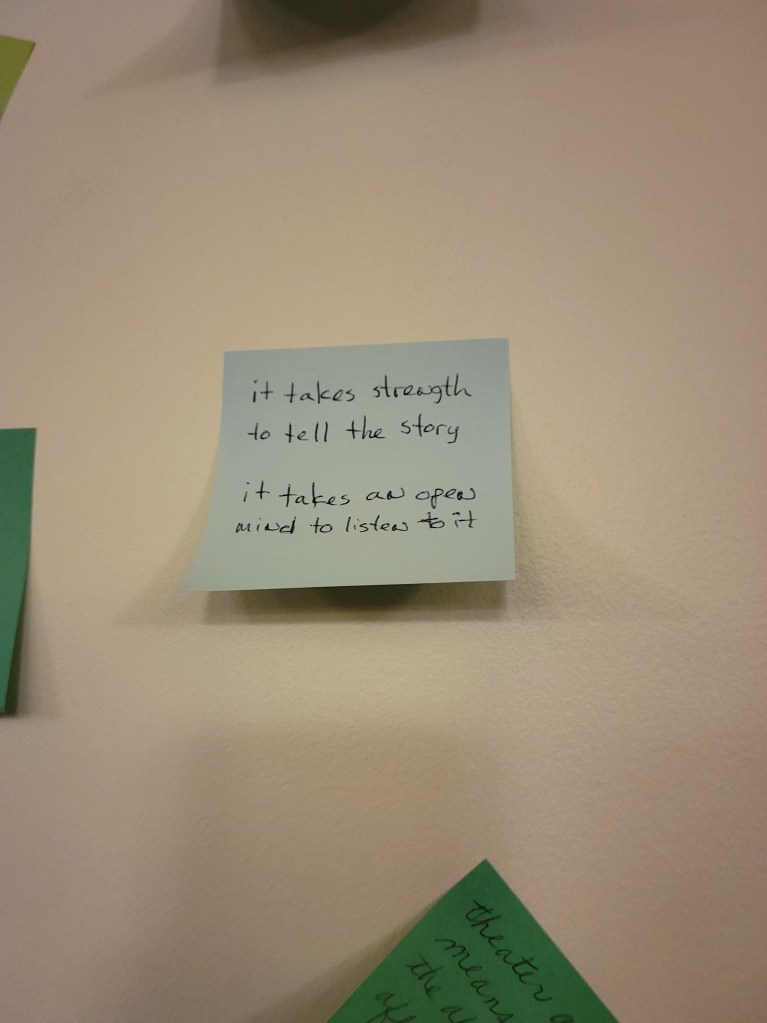 it takes strength
to tell the story
it takes an open
mind to listen to it
theater
means
the